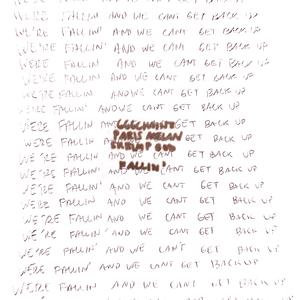 WE'RE FALLIN' AND WE CANT GET BACK UP
WE'RE FALLIN' AND WE CANT GET BACK UP
WE'RE FALLIN' AND WE CANT GET BACK UP
WE'RE FALLIN' AND WE CANT GET BACK UP
WE'RE FALLIN' AND WE CANT GET BACK UP
WE'RE FALLIN AND WE CANT GET BACK UP
WE'RE FALLIN AND WE CANT GET BACK UP
WERE FALLIN AN GET BACK UP
PARIS
WERE FALLIN AN GET BACK UP
WE'RE FALLIN GET BACK UP
FALLIN'
WE'RE FALLIN AND WE CANT GET BACK UP
WE'RE FALLIN' AND WE CANT GET BACK UP
WE'RE FALLIN' AND WE CANT GET BACK UP
WE'RE FALLIN' AND WE CANT GET BACK UP
WE'RE FALLIN' AND WE CANT GET BACK UP
WE'RE FALLIN' AND WE CANT GET BACK UP
WE'RE FALLIN' AND WE CANT GET BACK UP
WE'RE FALLIN' AND WE CANT GET BACK UP